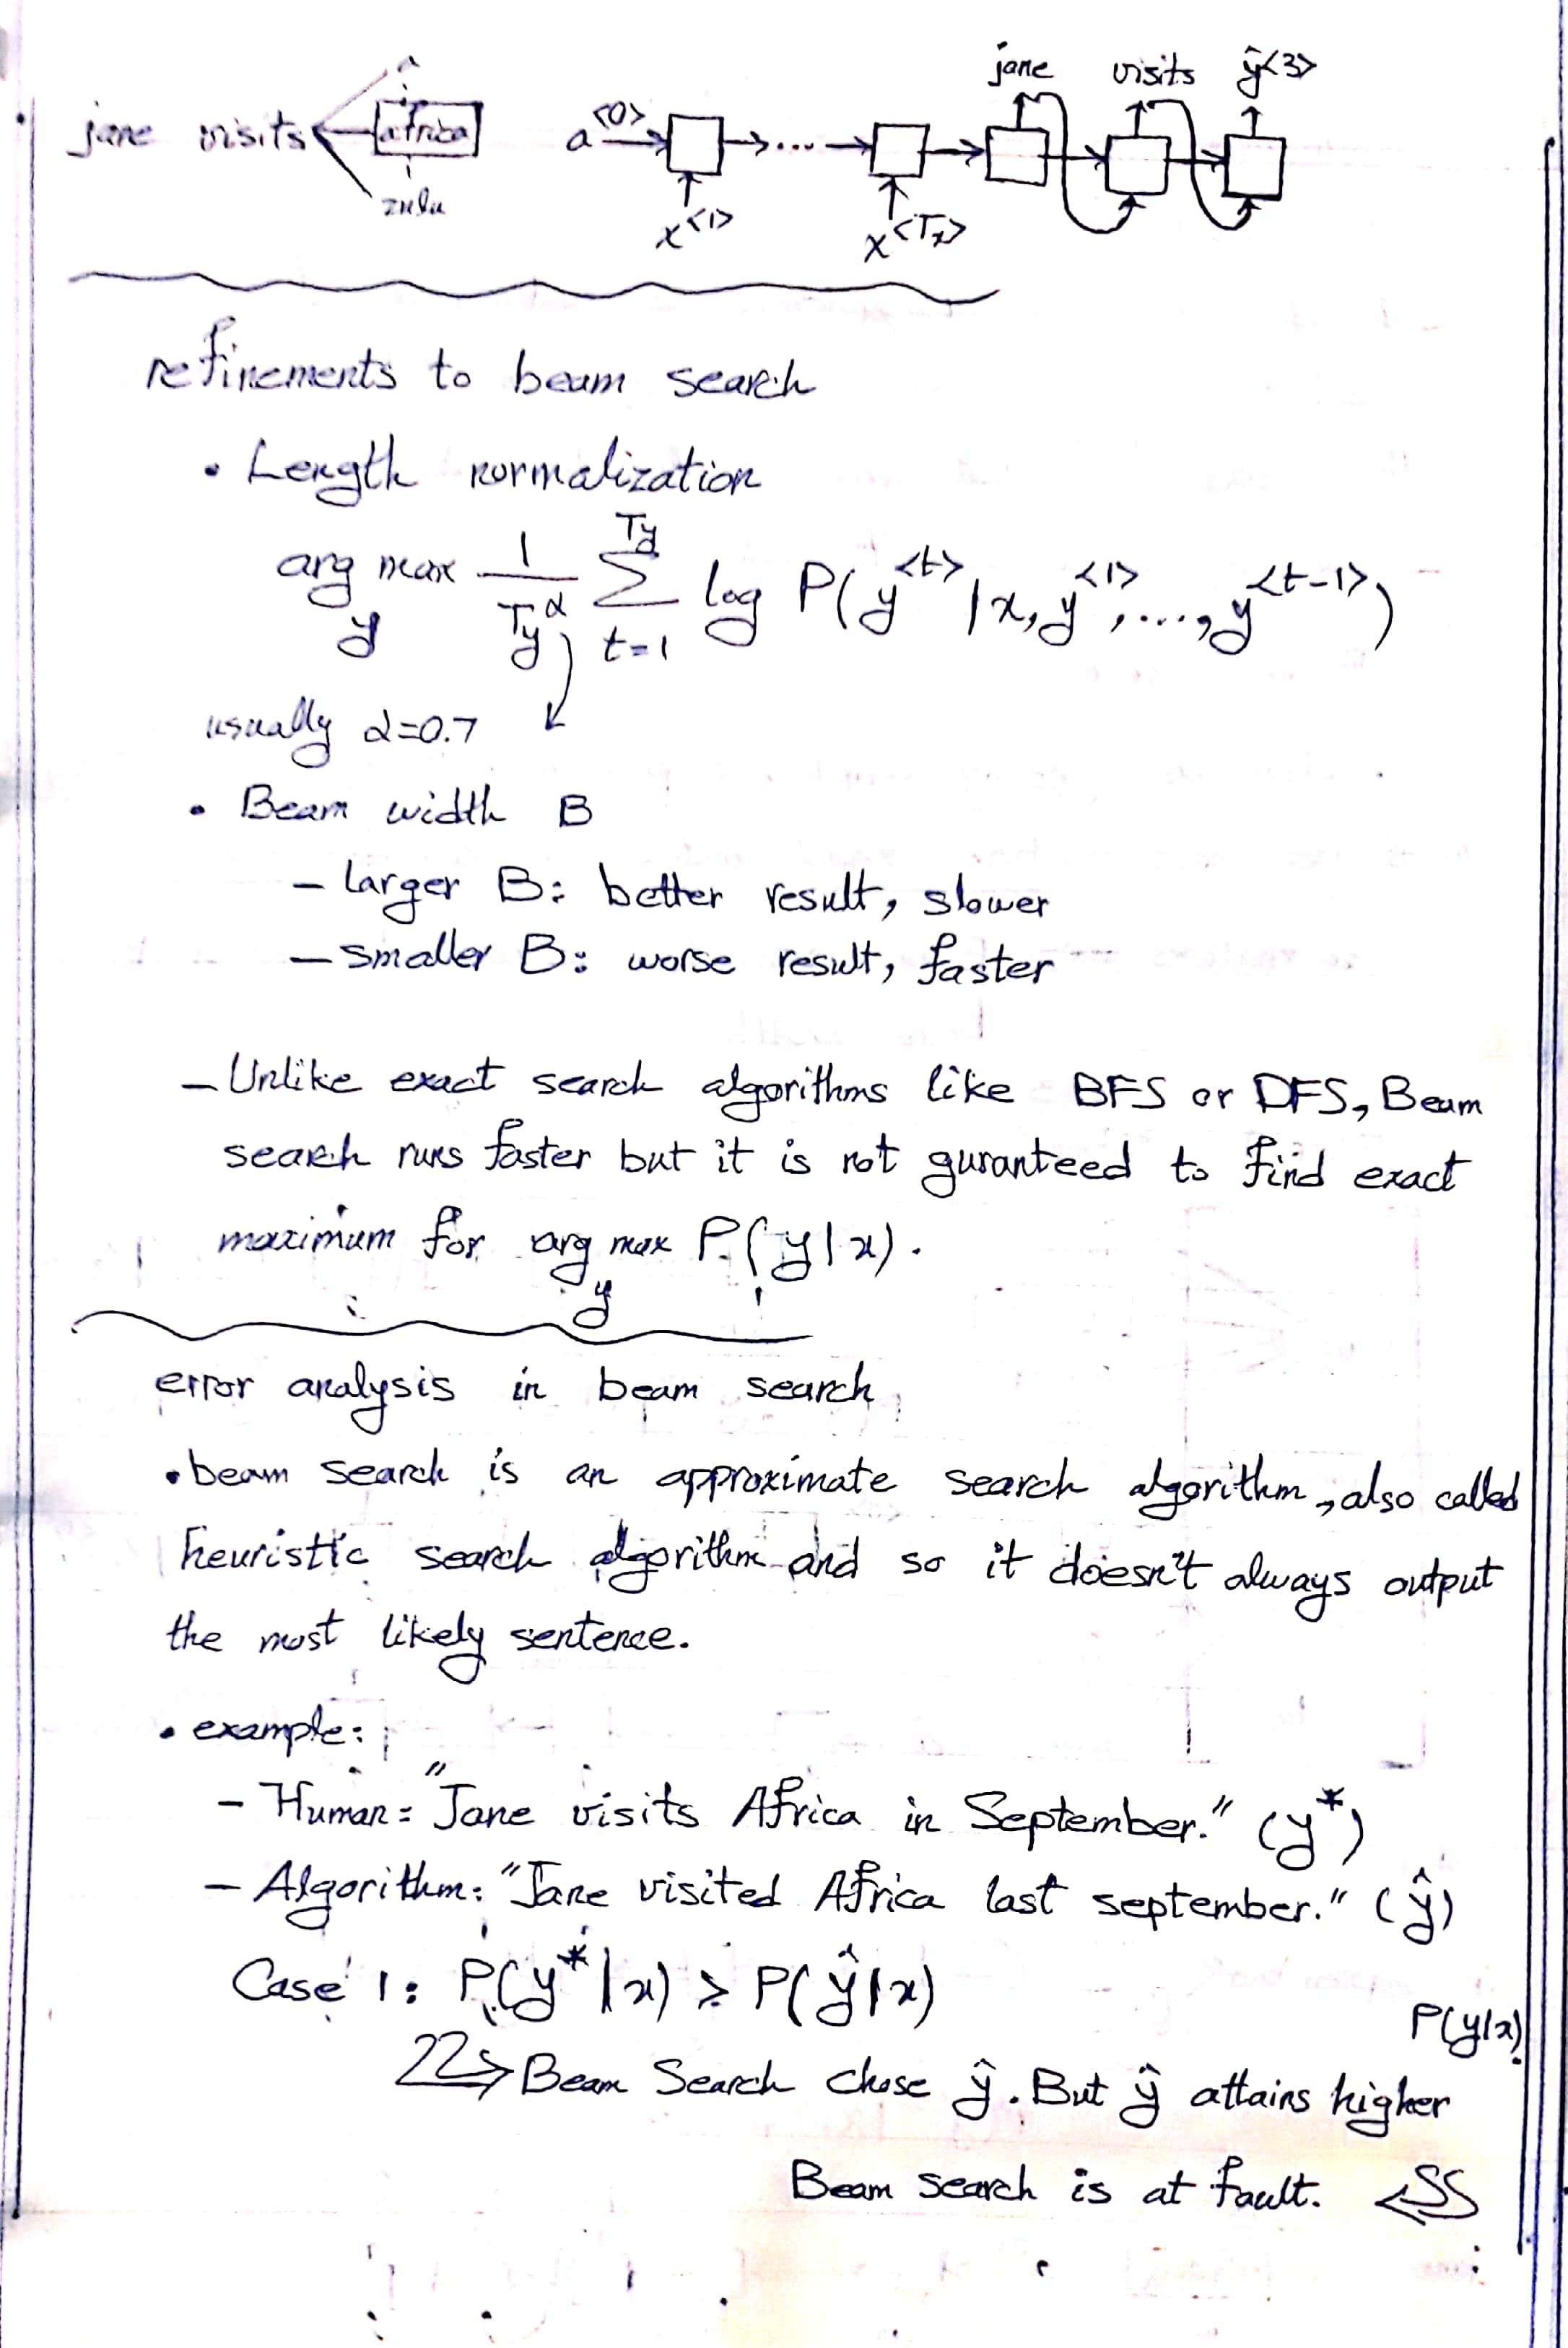 jane visits
a
in
africa
zulu
a<0>
x<1>
...
x<Tx>
jane visits ŷ<3>
refinements to beam search
• Length normalization
arg max_y 1/Ty^α Σ_{t=1}^{Ty} log P(y<t> | x, y<1>, ...., y<t-1>)
usually α=0.7
• Beam width B
- larger B: better result, slower
- smaller B: worse result, faster
- Unlike exact search algorithms like BFS or DFS, Beam
search runs faster but it is not guranteed to find exact
maximum for arg max_y P(y|x).
error analysis in beam search
• beam search is an approximate search algorithm, also called
heuristic search algorithm and so it doesn't always output
the most likely sentence.
• example:
- Human: "Jane visits Africa in September." (y*)
- Algorithm: "Jane visited Africa last september." (ŷ)
Case 1: P(y*|x) > P(ŷ|x)
Beam Search chose ŷ. But ŷ attains higher P(y|x)
Beam search is at fault.